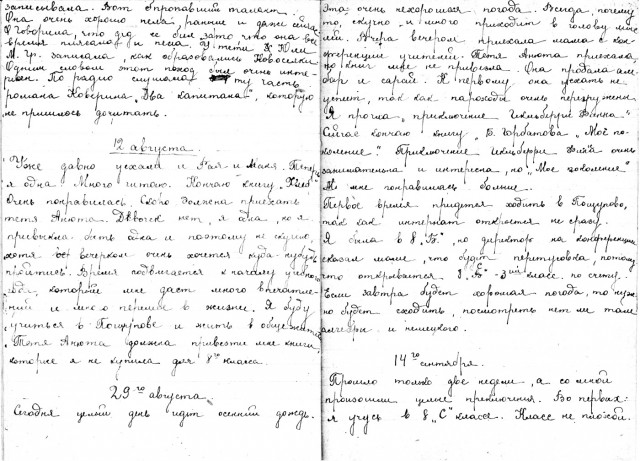 записывала. Вот
Она очень хорошо пела, раннее и даже сейчас
говорила, что
время плясала и пела
М. Г. записала, как образовались Новоселки
Одним словом этот поход был очень инте-
ресен. По радио слушала ту часть
романа Каверина „Два капитана", которую
не пришлось дочитать.
12 августа.
Уже давно уехала и Рая и Маня. Теперь
я одна. Много читаю. Кончаю книгу
Очень понравилась. Скоро должна приехать
тетя Анюта. Девочек нет, я одна, но я
привыкла быть одна и поэтому не скучно,
хотя вечерком очень хочется куда нибудь
пройтись. Время подвигается к началу учебного
года, который мне даст много впечатле-
ний и много перемен в жизни. Я буду
учиться в Пощупове и жить в общежитии
Тетя Анюта должна привезти мне книги,
которые я не купила для 8го класса.
29го августа
Сегодня целый день идет осенний дождь.
Эта очень нехорошая погода. Всегда, почему
то, скучно и много приходит в голову мыс-
лей. Вчера вечером приехала мама с кон-
ференции учителей. Тетя Анюта приехала,
но книг мне не привезла. Она продала ам-
бар и сарай. К первому она уехать не
успеет, так как пароходы очень перегружены.
Я прочла „приключение Гекльберри Финна".
Сейчас кончаю книгу Б. Горбатова „Мое по-
коление". Приключение Гекльберри Фина очень
занимательна и интересна, но „Мое поколение"
мне понравилась больше.
Первое время придется ходить в Пощупово,
так как интернат откроется не сразу.
Я была в 8 „Б", но директор на конференции
сказал маме, что будет перегруповка, потому
что открывается 8 „В" - 3ий класс по счету.
Если завтра будет хорошая погода, то нуж-
но будет сходить, посмотреть нет ли там
алгебры и немецкого.
14го сентября.
Прошло только две недели, а со мной
произошли целые приключения. Во первых:
я учусь в 8 „С" классе. Класс не плохой.